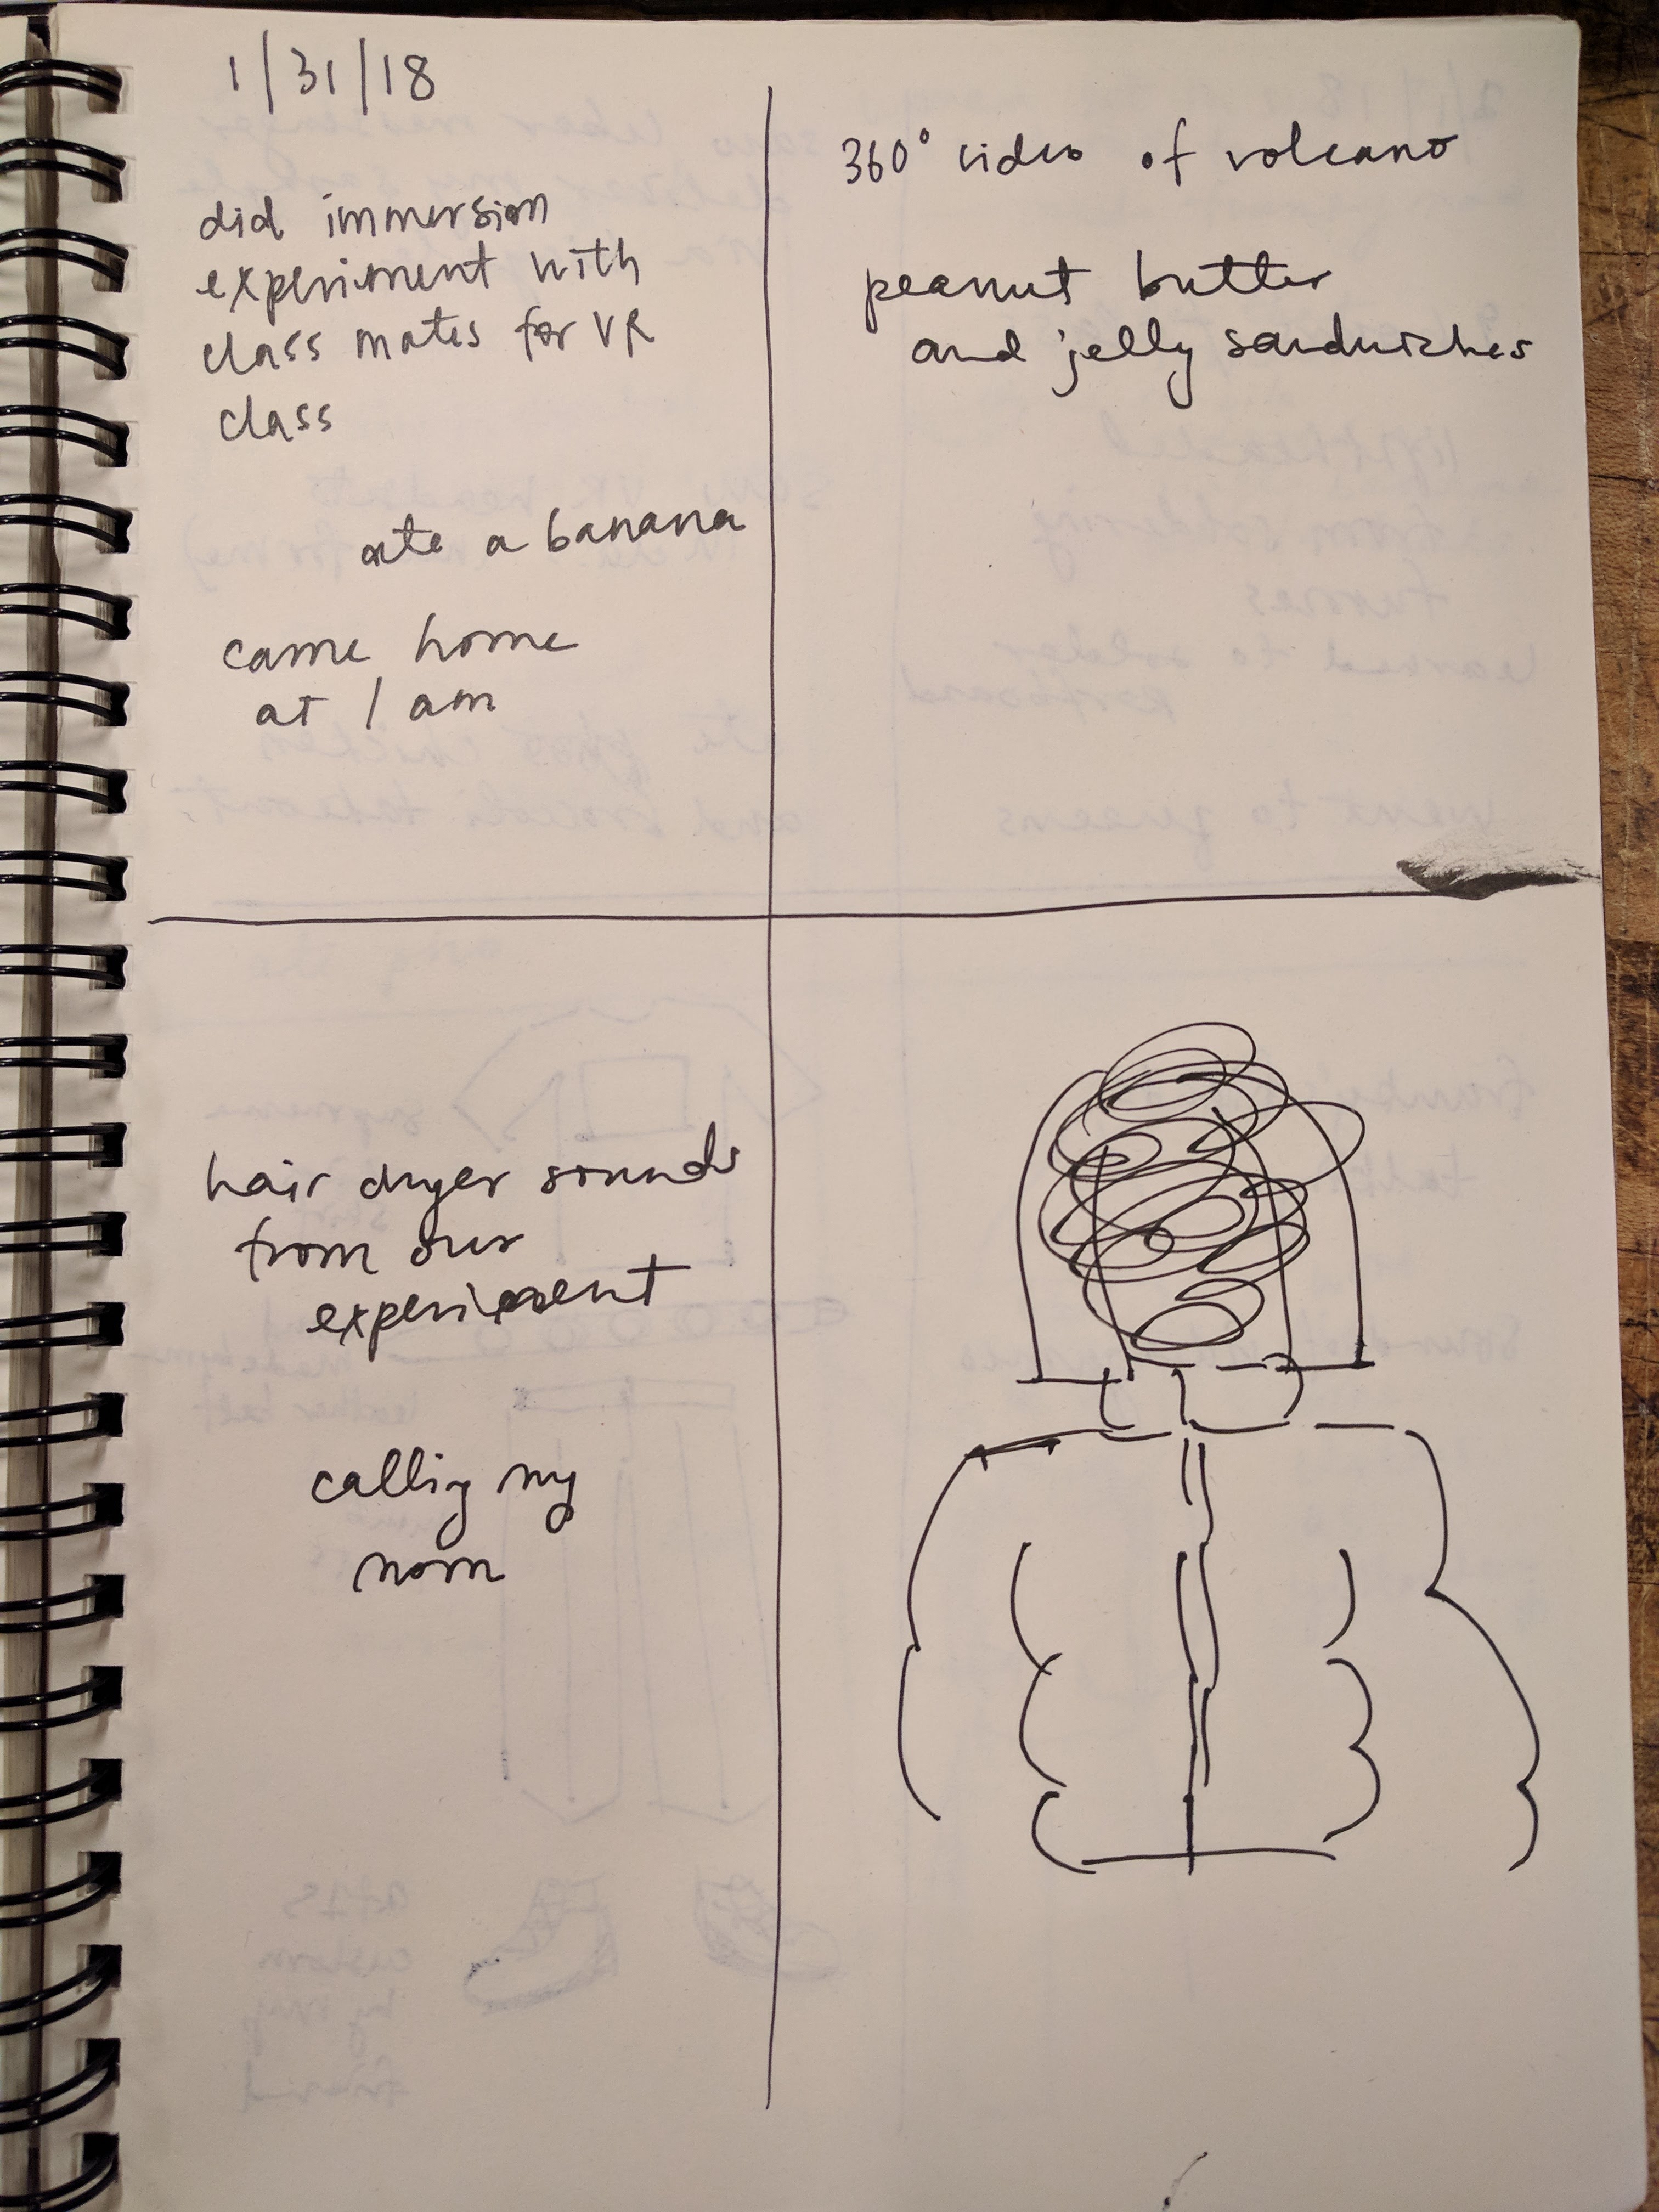 1/31/18
did immersion
experiment with
class mates for VR
class
ate a banana
came home
at 1 am
360° video of volcano
peanut butter
and jelly sandwiches
hair dryer sounds
from our
experiment
callig my
mom